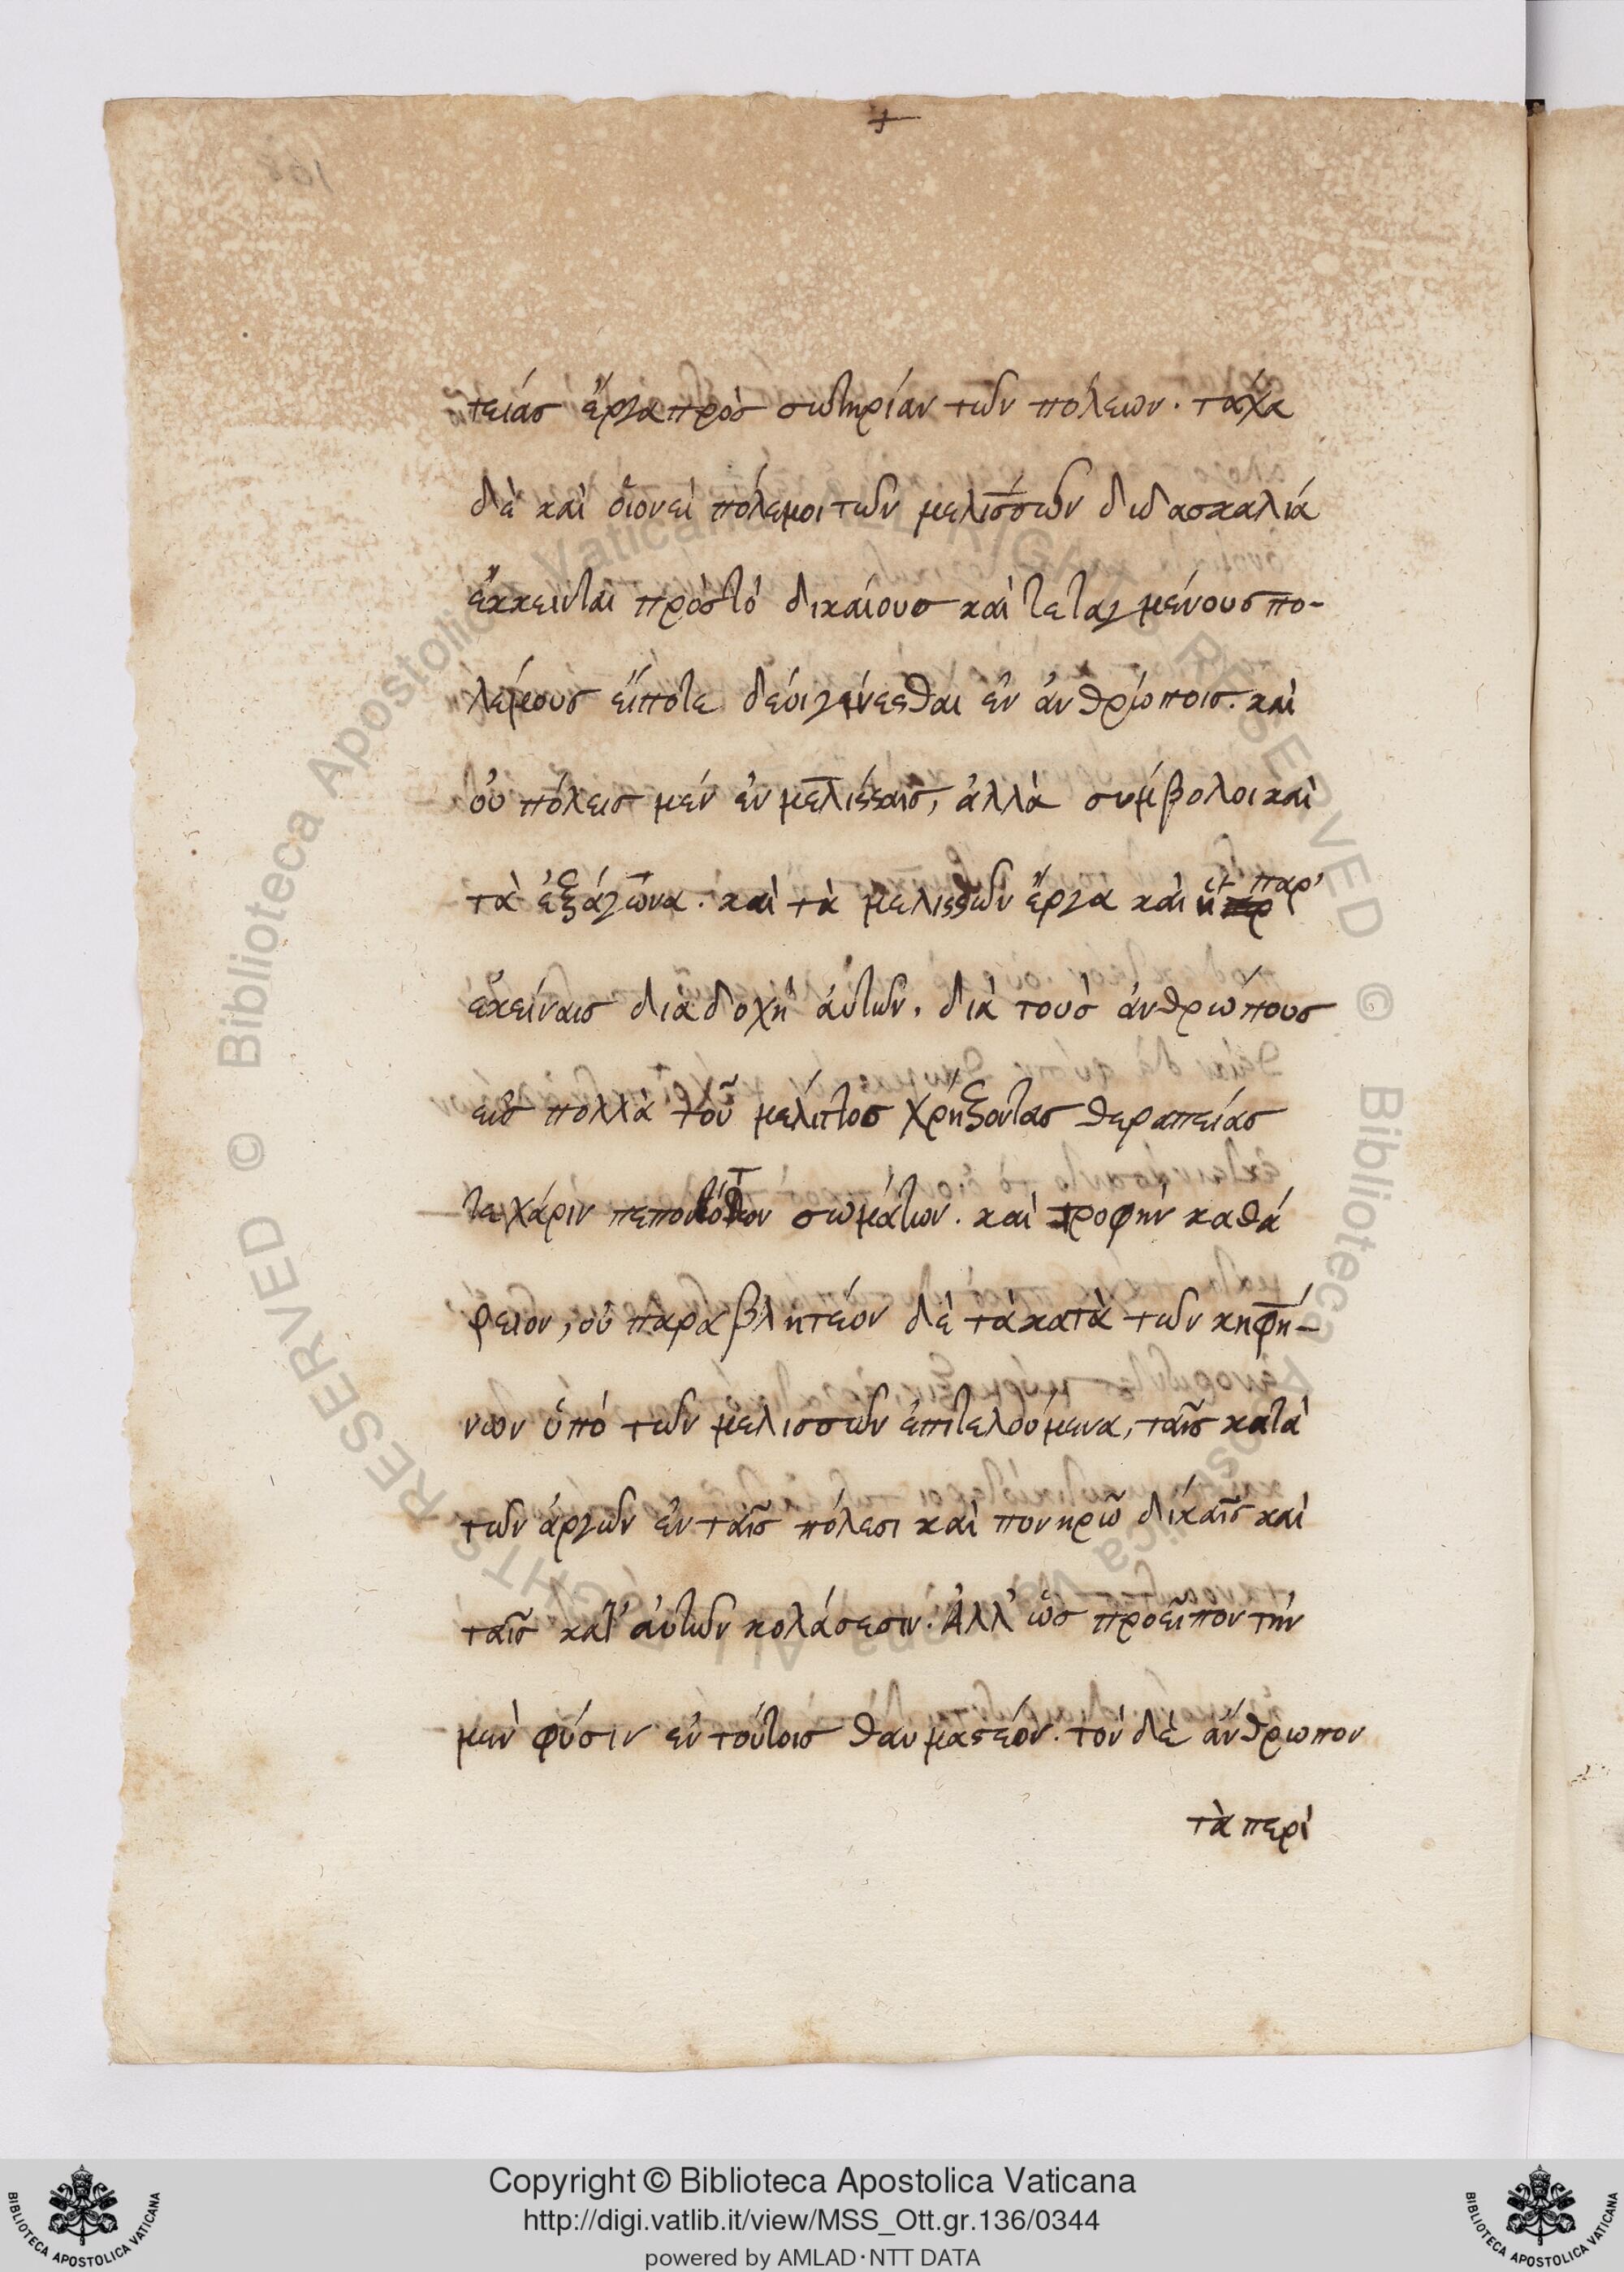 +
τείας ἔργα πρὸς σωτηρίαν τῶν πόλεων. τάχα
δὲ καὶ οἱονεὶ πόλεμοι τῶν μελισσῶν διδασκαλία
ἔκκεινται πρὸς τὸ δικαίους καὶ τεταγμένους πο-
λέμους εἴποτε δέοι γίνεσθαι ἐν ἀνθρώποις. καὶ
οὐ πόλεις μὲν ἐν μελίσσαις, ἀλλὰ σύμβολοι καὶ
τὰ ἑξάγωνα. καὶ τὰ μελισσῶν ἔργα καὶ ἡ παρ'
ἐκείναις διαδοχὴ αὐτῶν. διὰ τοὺς ἀνθρώπους
εἰς πολλὰ τοῦ μέλιτος χρήζοντας θεραπείας
τε χάριν πεπονθότων σωμάτων. καὶ τροφὴν καθά
ρειον, οὐ παραβλητέον δὲ τὰ κατὰ τῶν κηφή-
νων ὑπὸ τῶν μελισσῶν ἐπιτελούμενα, ταῖς κατὰ
τῶν ἀργῶν ἐν ταῖς πόλεσι καὶ πονηρῶ δίκαις καὶ
ταῖς κατ' αὐτῶν κολάσεσιν. Ἀλλ' ὡς προεῖπον τὴν
μὲν φύσιν ἐν τούτοις θαυμαστέον. τὸν δὲ ἄνθρωπον
τὰ περὶ
© Biblioteca Apostolica Vaticana ALL RIGHTS RESERVED © Biblioteca Apostolica Vaticana ALL RIGHTS RESERVED
Copyright © Biblioteca Apostolica Vaticana
http://digi.vatlib.it/view/MSS_Ott.gr.136/0344
powered by AMLAD·NTT DATA
BIBLIOTECA APOSTOLICA VATICANA
BIBLIOTECA APOSTOLICA VATICANA